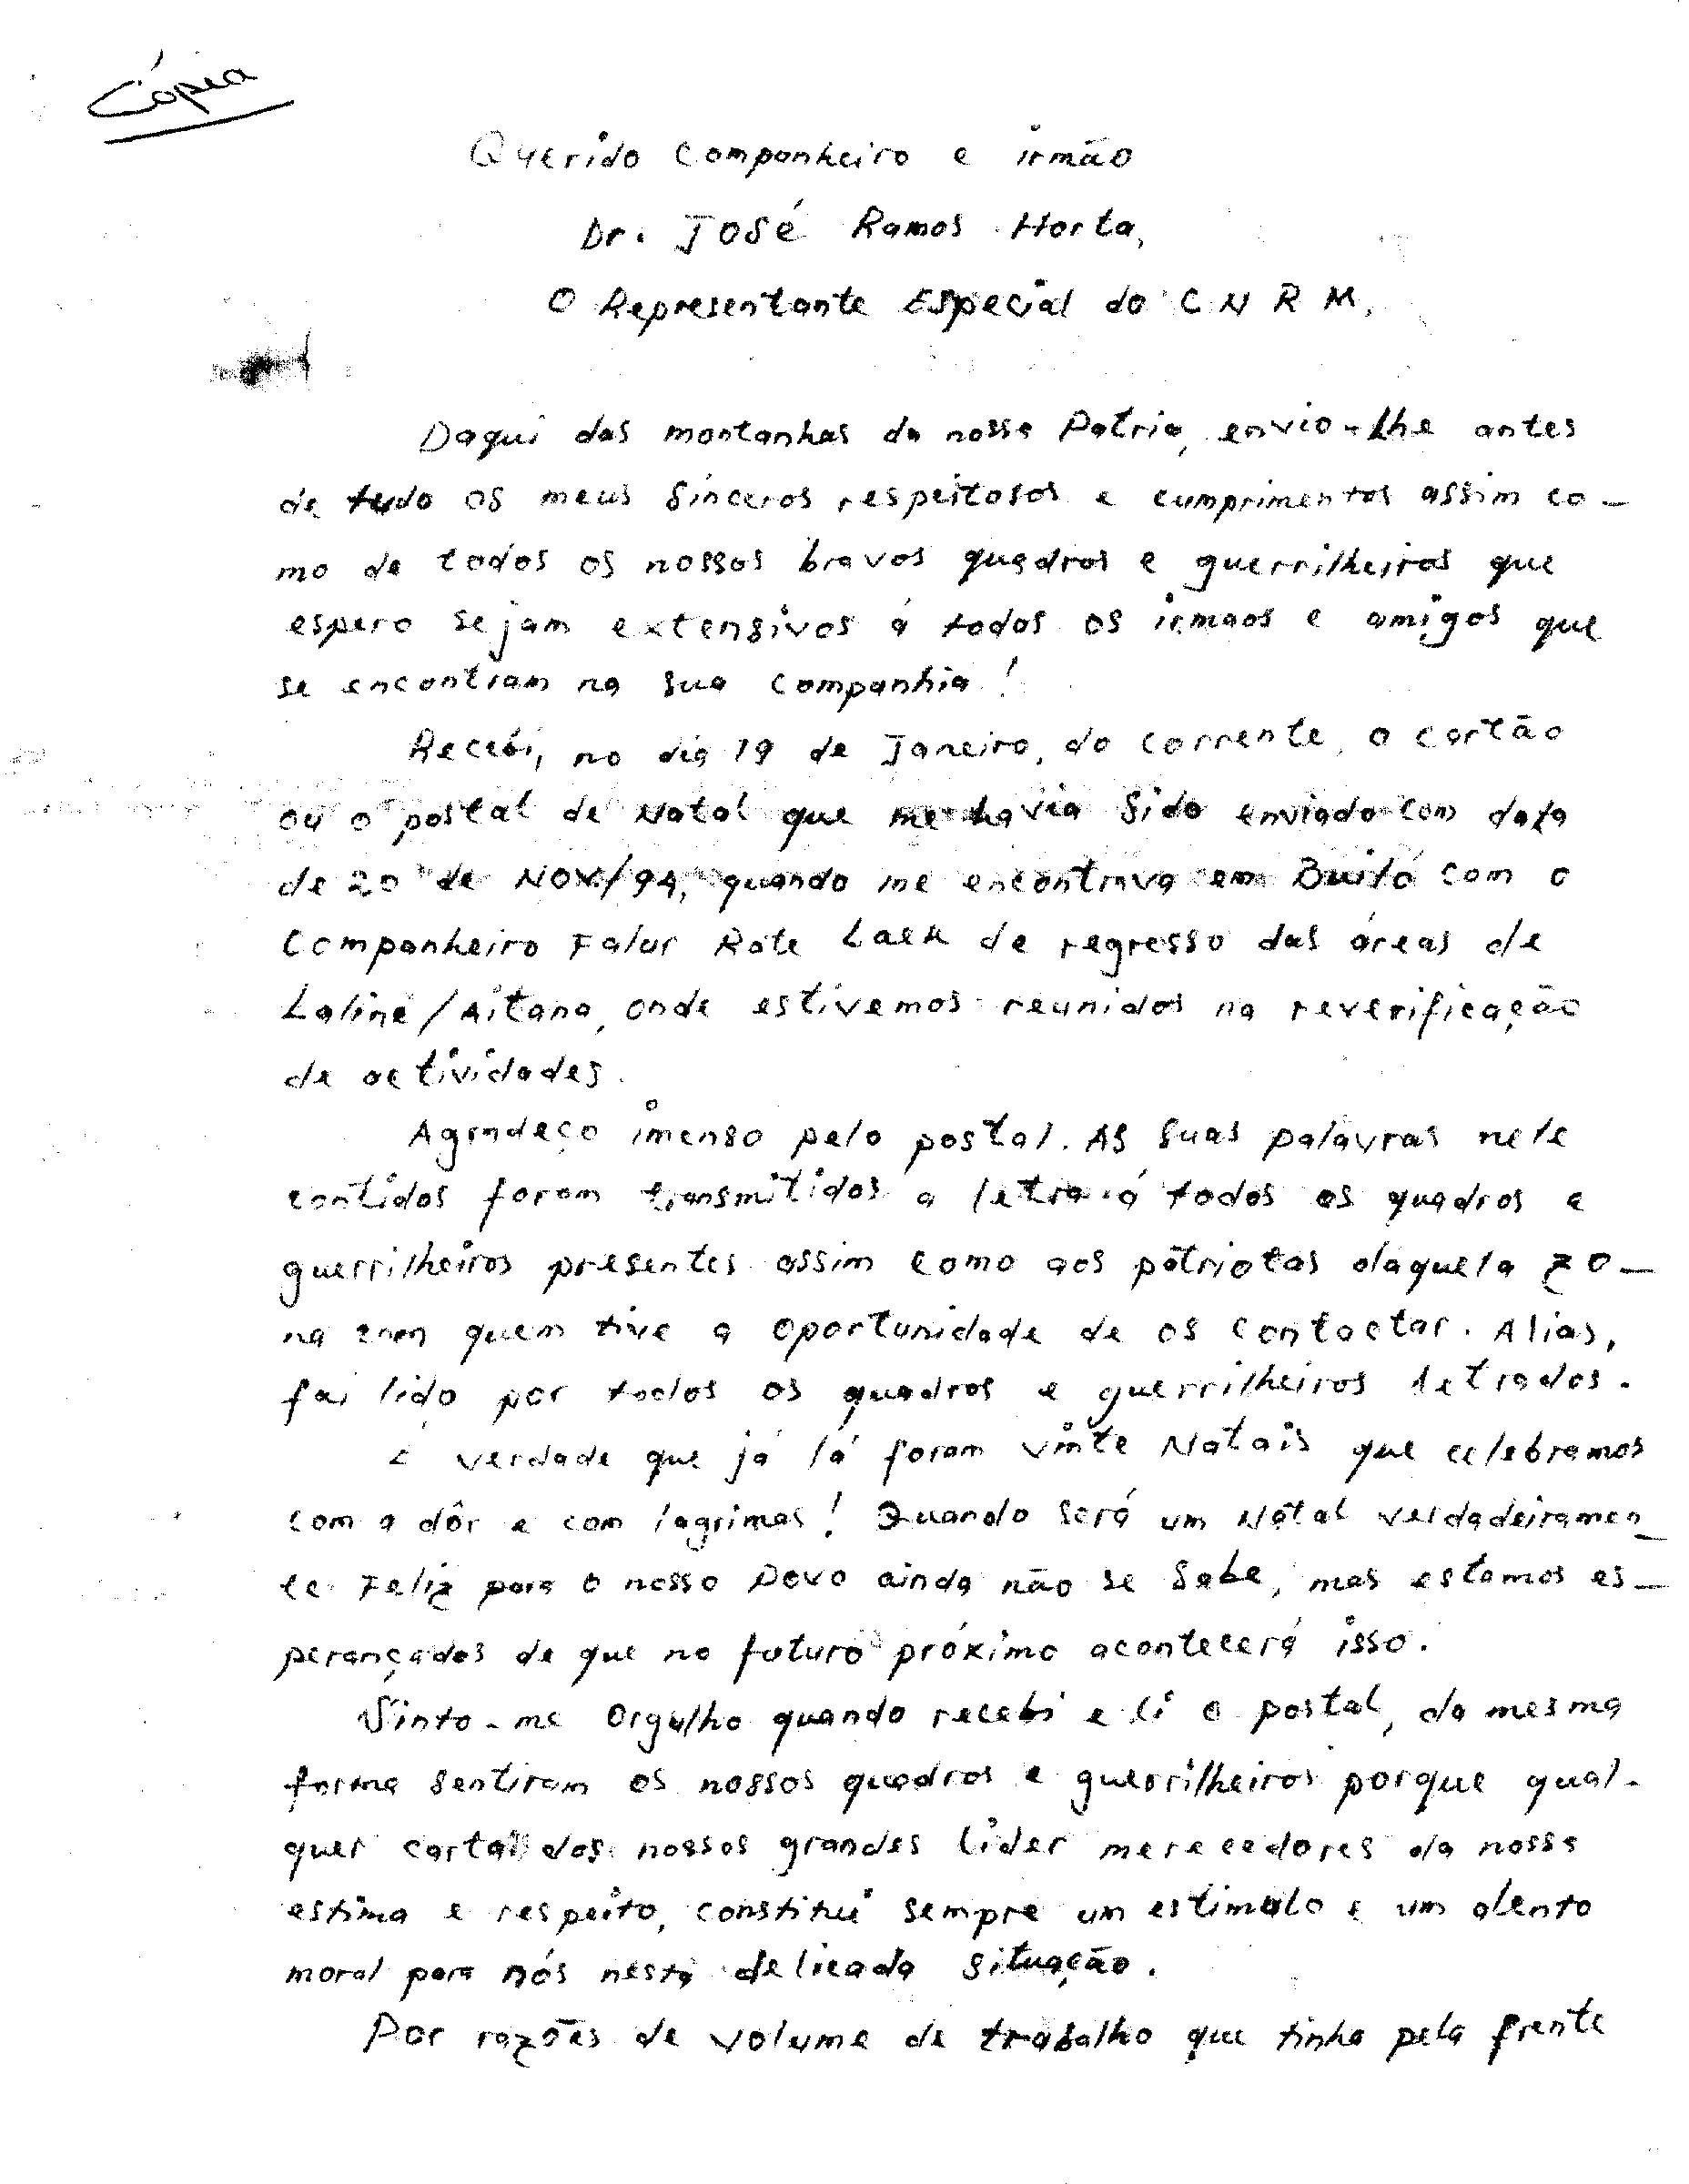 Cópia
Querido Companheiro e irmão
Dr. José Ramos Horta,
O Representante Especial do CNRM,
Daqui das montanhas da nossa Patria, envio-lhe antes
de tudo os meus sinceros respeitosos e cumprimentos assim co-
mo de todos os nossos bravos quadros e guerrilheiros que
espero sejam extensivos á todos os irmaos e amigos que
se encontram na sua companhia!
Recebi, no dia 19 de Janeiro, do corrente, o cartão
ou o postal de Natal que me havia sido enviado com data
de 20 de NOV/94, quando me encontrava em com o
Companheiro Falur Rate Laek de regresso das áreas de
Laline/Aitana, onde estivemos reunidos na reverificação
de actividades.
Agradeço imenso pelo postal. As suas palavras nele
contidos foram transmitidos a letra á todos os quadros e
guerrilheiros presentes assim como aos pátriotas daquela zo-
na com quem tive a oportunidade de os contactar. Alias,
foi lido por todos os quadros e guerrilheiros letrados.
É verdade que já lá foram vinte Natais que celebramos
com a dôr e com lagrimas! Quando será um Natal verdadeiramen-
te Feliz para o nosso Povo ainda não se sabe, mas estamos es-
perançados de que no futuro próximo acontecerá isso.
Sinto-me orgulho quando recebi e li o postal, da mesma
forma sentiram os nossos quadros e guerrilheiros porque qual-
quer carta dos nossos grandes líder merecedores da nossa
estima e respeito, constitui sempre um estimulo e um alento
moral para nós nesta delicada situação.
Por razões de volume de trabalho que tinha pela frente